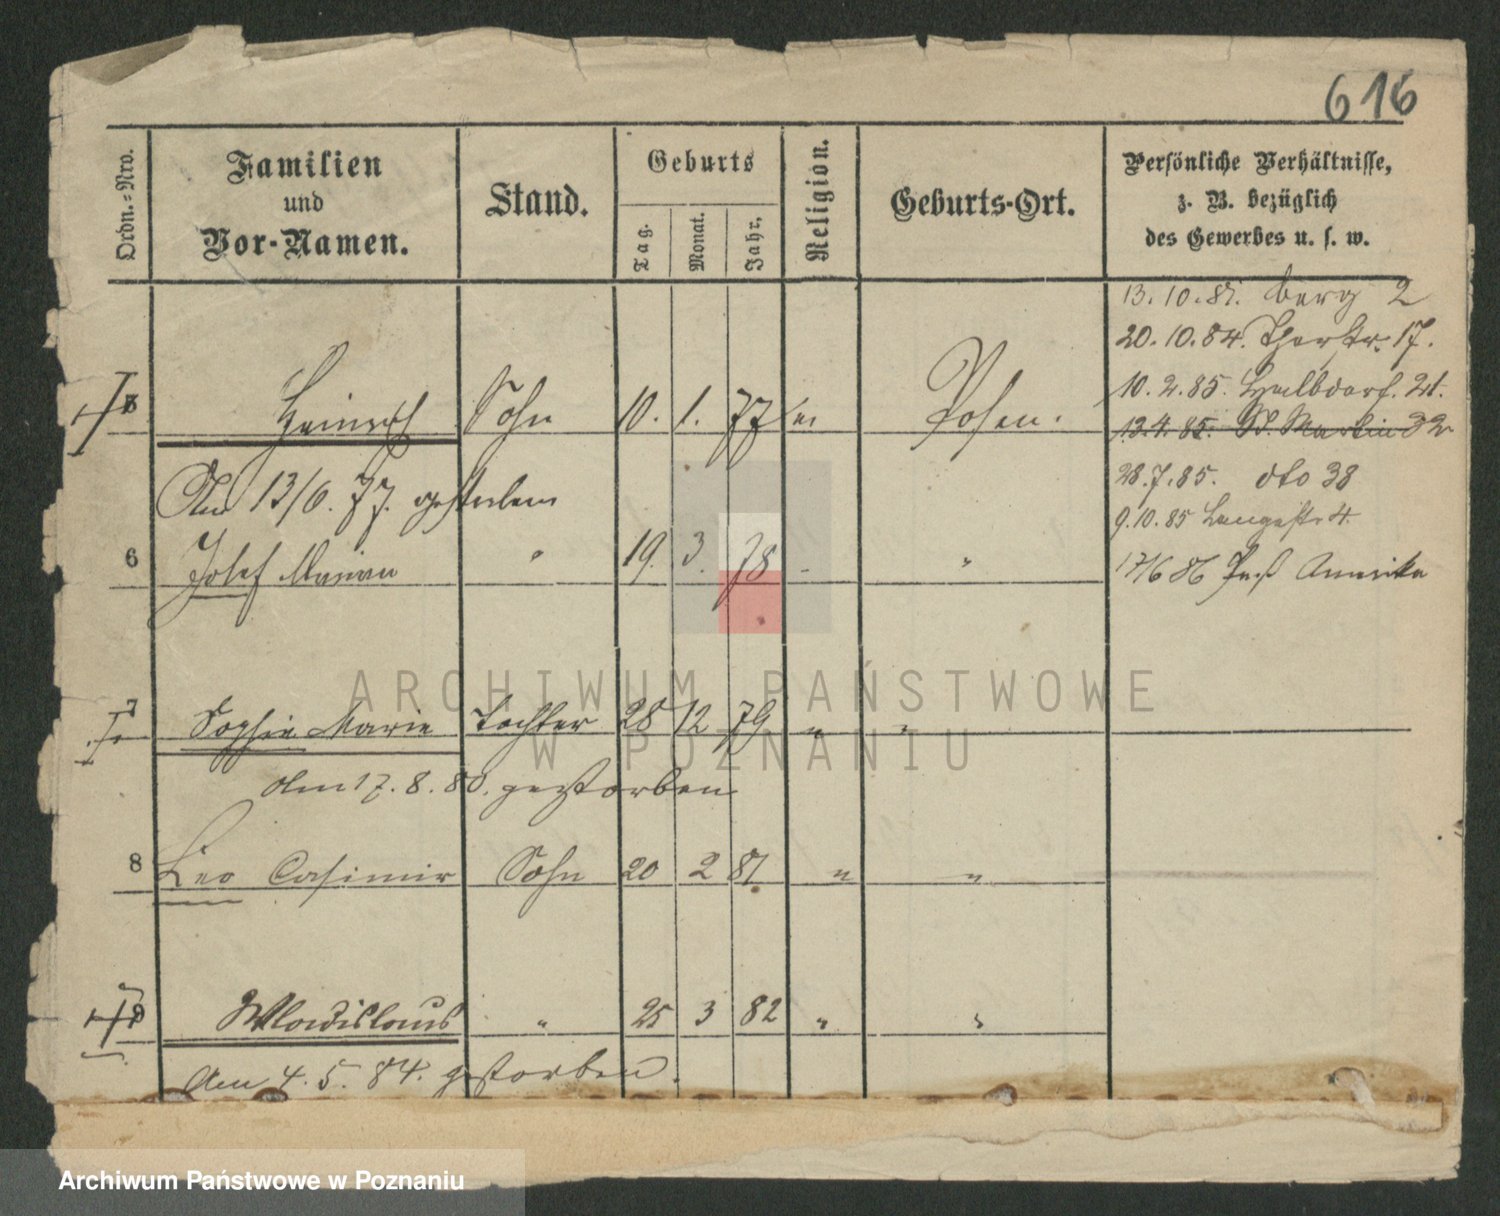 616
Ordn.-Nro.
Familien
und
Vor-Namen.
Stand.
Geburts
Tag.
Monat.
Jahr.
Religion.
Geburts-Ort.
Persönliche Verhältnisse,
z. B. bezüglich
des Gewerbes u. s. w.
13.10.81. Berg 2
20.10.84. Thorstr. 17.
10.2.85. Halbdorf. 21.
5 Heinrich Sohn 10. 1. 77 Posen.
13.4.85. St. Martin 32
Am 13/6. 77. gestorben
28.7.85. dto 38
9.10.85 Langestr 4.
6 Josef Marian " 19. 3. 78 "
17/6 86 Paß Amerika
ARCHIWUM PAŃSTWOWE
W POZNANIU
7 Sophie Marie Tochter 28 12 79 " "
Am 17. 8. 80. gestorben
8 Leo Casimir Sohn 20 2 81 " "
9 Wladislaus " 25 3 82 " "
Am 4. 5. 84. gestorben.
Archiwum Państwowe w Poznaniu